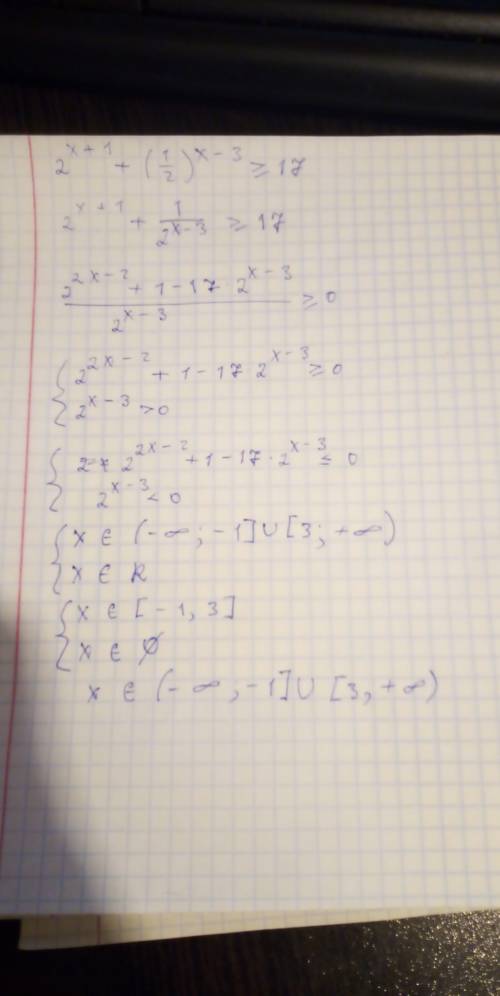 2^{x+1} + (1/2)^{x-3} ≥ 17
2^{x+1} + 1/2^{x-3} ≥ 17
(2^{2x-2} + 1 - 17 · 2^{x-3}) / 2^{x-3} ≥ 0
{ 2^{2x-2} + 1 - 17 · 2^{x-3} ≥ 0
2^{x-3} > 0
{ 2^{2x-2} + 1 - 17 · 2^{x-3} ≤ 0
2^{x-3} < 0
{ x ∈ (-∞; -1] ∪ [3; +∞)
x ∈ R
{ x ∈ [-1, 3]
x ∈ ∅
x ∈ (-∞, -1] ∪ [3, +∞)